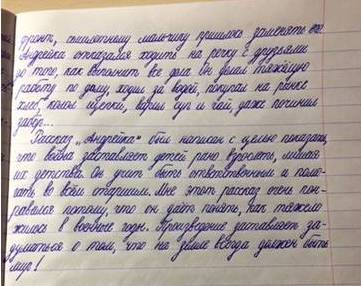 фронт, семилетнему мальчику пришлось заменять его.
Андрейка отказался ходить на речку с друзьями
до того, как выполнит все дела. Он делал тяжёлую
работу по дому, ходил за водой, покупал на рынке
хлеб, колол щепки, варил суп и чай, даже починил
забор...
Рассказ „Андрейка" был написан с целью показать,
что война заставляет детей рано взрослеть, лишая
их детства. Он учит быть ответственным и помо-
гать во всём старшим. Мне этот рассказ очень пон-
равился потому, что он даёт понять, как тяжело
жилось в военные годы. Произведение заставляет за-
думаться о том, что на земле всегда должен быть
мир!